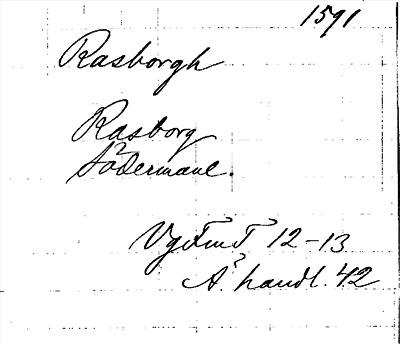 1591
Rasborgh
Rasborg
Södermanl.
VgFmT 12-13
A. handl. 42